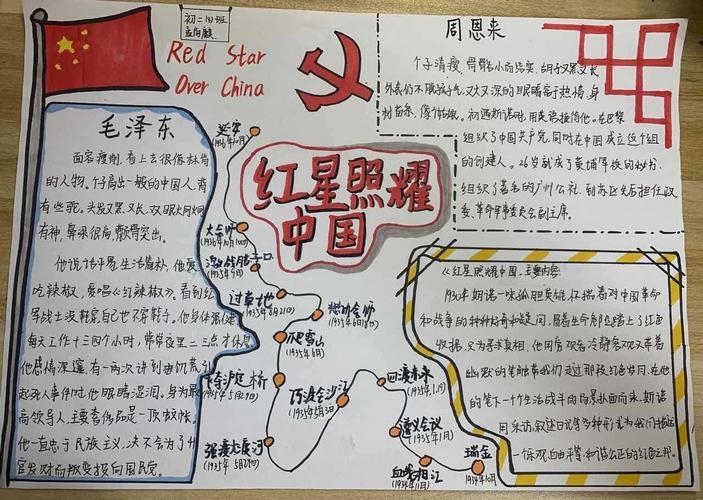 初二
Red Star
Over China
毛泽东
面容瘦削,看上去很像林肯
的人物。个子高出一般的中国人,背
有些驼,头发又黑又长,双眼炯炯
有神,鼻梁很高,颧骨突出。
他说话平易,生活简朴,他爱
吃辣椒,爱唱《红辣椒》。看到红
军战士没鞋穿自己也不穿鞋子。他身体强健
每天工作十三四个小时,常常夜里二三点才休息
他感情深邃,有一两次讲到
死人事件时他眼睛湿润。身为最
高领导人,主要奢侈品是一顶蚊帐。
他一直忠于民族主义,决不会为了升
官发财而叛变投向国民党。
周恩来
个子清瘦,骨骼小而结实,胡子又黑又长
外表仍不脱孩子气,又大又深的眼睛富于热情,身
材苗条,像个姑娘。初遇斯诺时,用英语接待他。在巴黎
组织了中国共产党,同时在中国成立这个组
的创建人。26岁就成了黄埔军校的秘书,
组织了著名的广州公社,到苏区先后担任政
委、革命军事委员会副主席。
红星照耀
中国
延安
大会师
(1936年10月10日)
激战腊子口
(1935年9月)
过草地
(1935年8月21日)
懋功会师
爬雪山
(1935年6月)
飞夺泸定桥
(1935年5月29日)
强渡大渡河
巧渡金沙江
(1935年5月3日)
四渡赤水
(1935年1.19)
遵义会议
(1935年1月)
血战湘江
(1934年11月)
瑞金
1934年10月
《红星照耀中国》主要内容:
1930年斯诺一味孤胆英雄,怀揣着对中国革命
和战争的种种好奇和疑问,冒着生命危险踏上了红色
幽默的笔触带我们走进那段红色岁月,在他
的笔下一个个生活战斗的场景扑面而来,斯诺
用采访、叙述日记等多种形式为我们描述